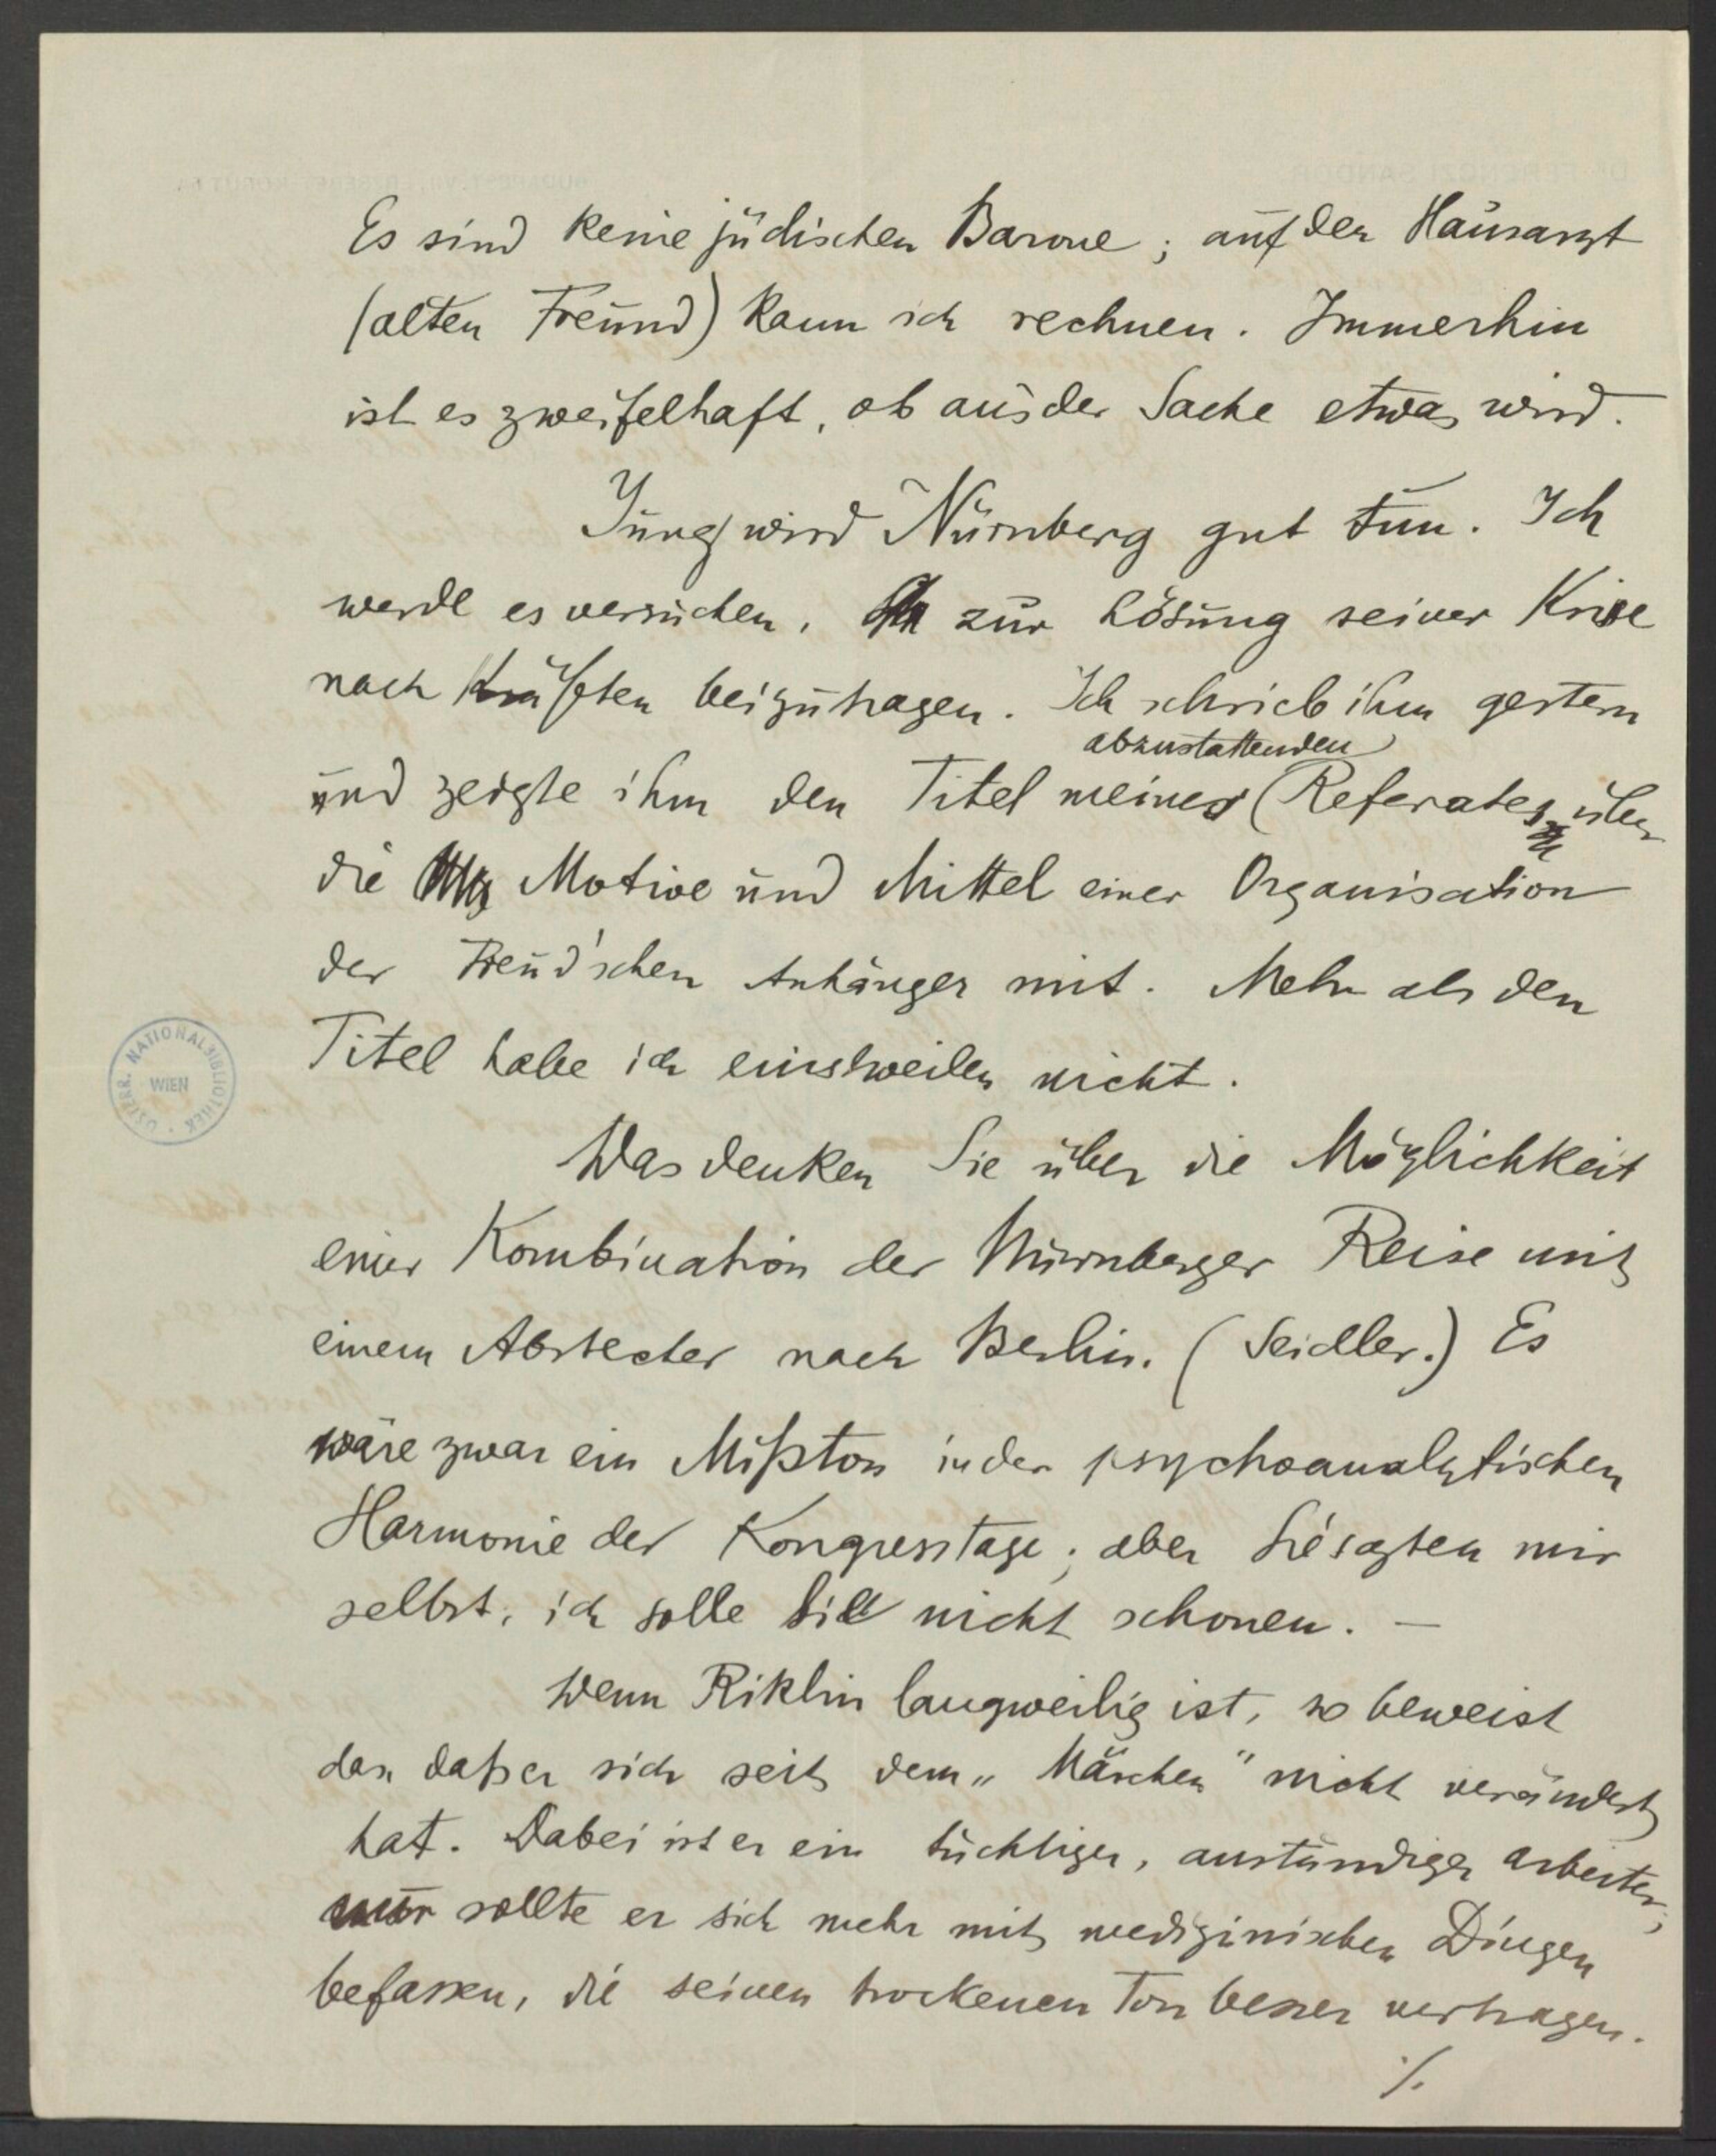 Es sind keine jüdischen Barone; auf den Hausarzt
(alten Freund) kann ich rechnen. Immerhin
ist es zweifelhaft, ob aus der Sache etwas wird.
Jung wird Nürnberg gut tun. Ich
werde es versuchen, zur Lösung seiner Krise
nach Kräften beizutragen. Ich schrieb ihm gestern
abzustattenden
und zeigte ihm den Titel meines (Referates über
die Motive und Mittel einer Organisation
der Freud'schen Anhänger mit. Mehr als den
Titel habe ich einstweilen nicht.
ÖSTERR. NATIONALBIBLIOTHEK · WIEN
Was denken Sie über die Möglichkeit
einer Kombination der Nürnberger Reise mit
einem Abstecher nach Berlin. (Seidler.) Es
wäre zwar ein Mißton in der psychoanalytischen
Harmonie der Kongresstage; aber Sie sagten mir
selbst, ich solle sie nicht schonen. —
Wenn Riklin langweilig ist, so beweist
das, daß er sich seit dem „Märchen" nicht verändert
hat. Dabei ist er ein tüchtiger, anständiger Arbeiter;
nur sollte er sich mehr mit medizinischen Dingen
befassen, die seinen trockenen Ton besser vertragen.
./.